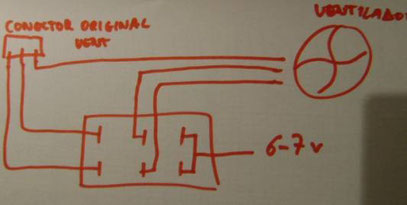 CONECTOR ORIGINAL
VENT
VENTILADOR
6-7 v